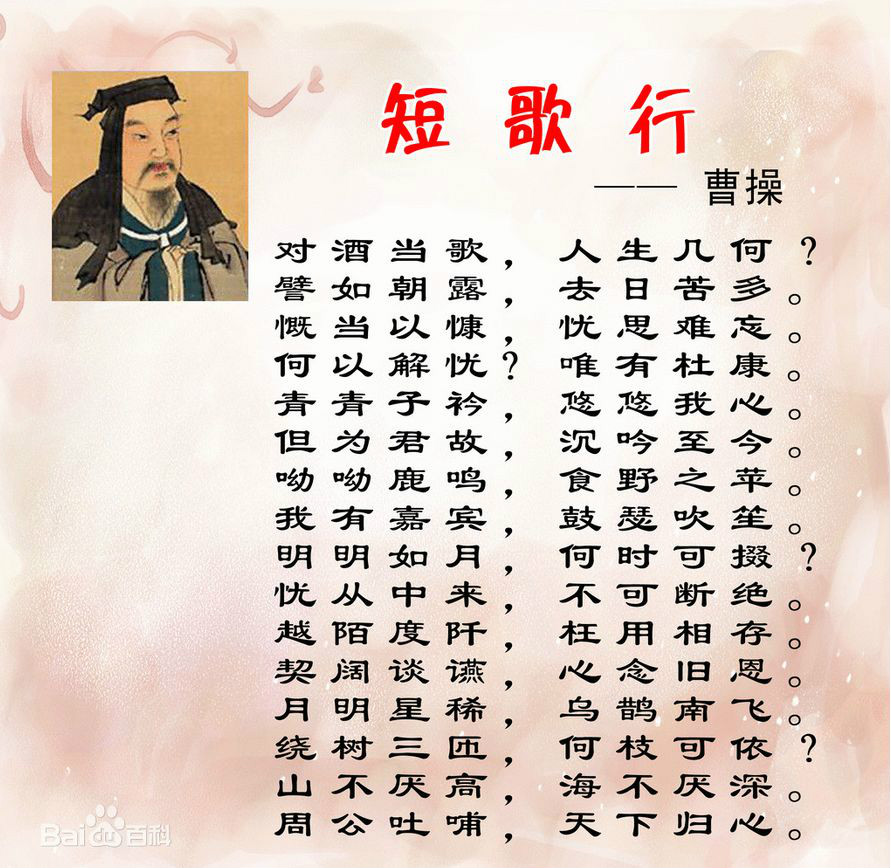 短歌行
—— 曹操
对酒当歌，人生几何？
譬如朝露，去日苦多。
慨当以慷，忧思难忘。
何以解忧？唯有杜康。
青青子衿，悠悠我心。
但为君故，沉吟至今。
呦呦鹿鸣，食野之苹。
我有嘉宾，鼓瑟吹笙。
明明如月，何时可掇？
忧从中来，不可断绝。
越陌度阡，枉用相存。
契阔谈䜩，心念旧恩。
月明星稀，乌鹊南飞。
绕树三匝，何枝可依？
山不厌高，海不厌深。
周公吐哺，天下归心。
Baidu百科